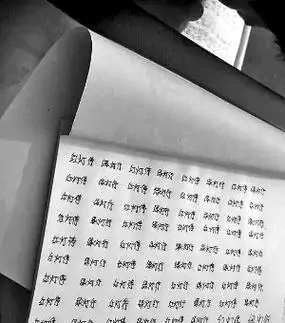 红灯停 绿灯行 红灯停 绿灯行 红灯停 绿灯行 红灯停 绿灯行
红灯停 绿灯行 红灯停 绿灯行 红灯停 绿灯行 红灯停 绿灯行
红灯停 绿灯行 红灯停 绿灯行 红灯停 绿灯行 红灯停 绿灯行
红灯停 绿灯行 红灯停 绿灯行 红灯停 绿灯行 红灯停 绿灯行
红灯停 绿灯行 红灯停 绿灯行 红灯停 绿灯行 红灯停 绿灯行
红灯停 绿灯行 红灯停 绿灯行 红灯停 绿灯行 红灯停 绿灯行
红灯停 绿灯行 红灯停 绿灯行 红灯停 绿灯行 红灯停 绿灯行
红灯停 绿灯行 红灯停 绿灯行 红灯停 绿灯行 红灯停 绿灯行